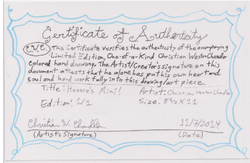 Certificate of Authenticity
This Certificate verifies the authenticity of the accompanying
Limited Edition, One-of-a-kind Christian Weston Chandler
colored hand drawing. The Artist/Creator's signature on this
document attests that he alone has put his own heart and
soul and hand work fully into this drawing/art piece.
Title: Artist: Christian Weston Chandler
Edition: 1/1 Size: 8½ X 11
Christian W. Chandler 11/7/2014
(Artist's Signature) (Date)